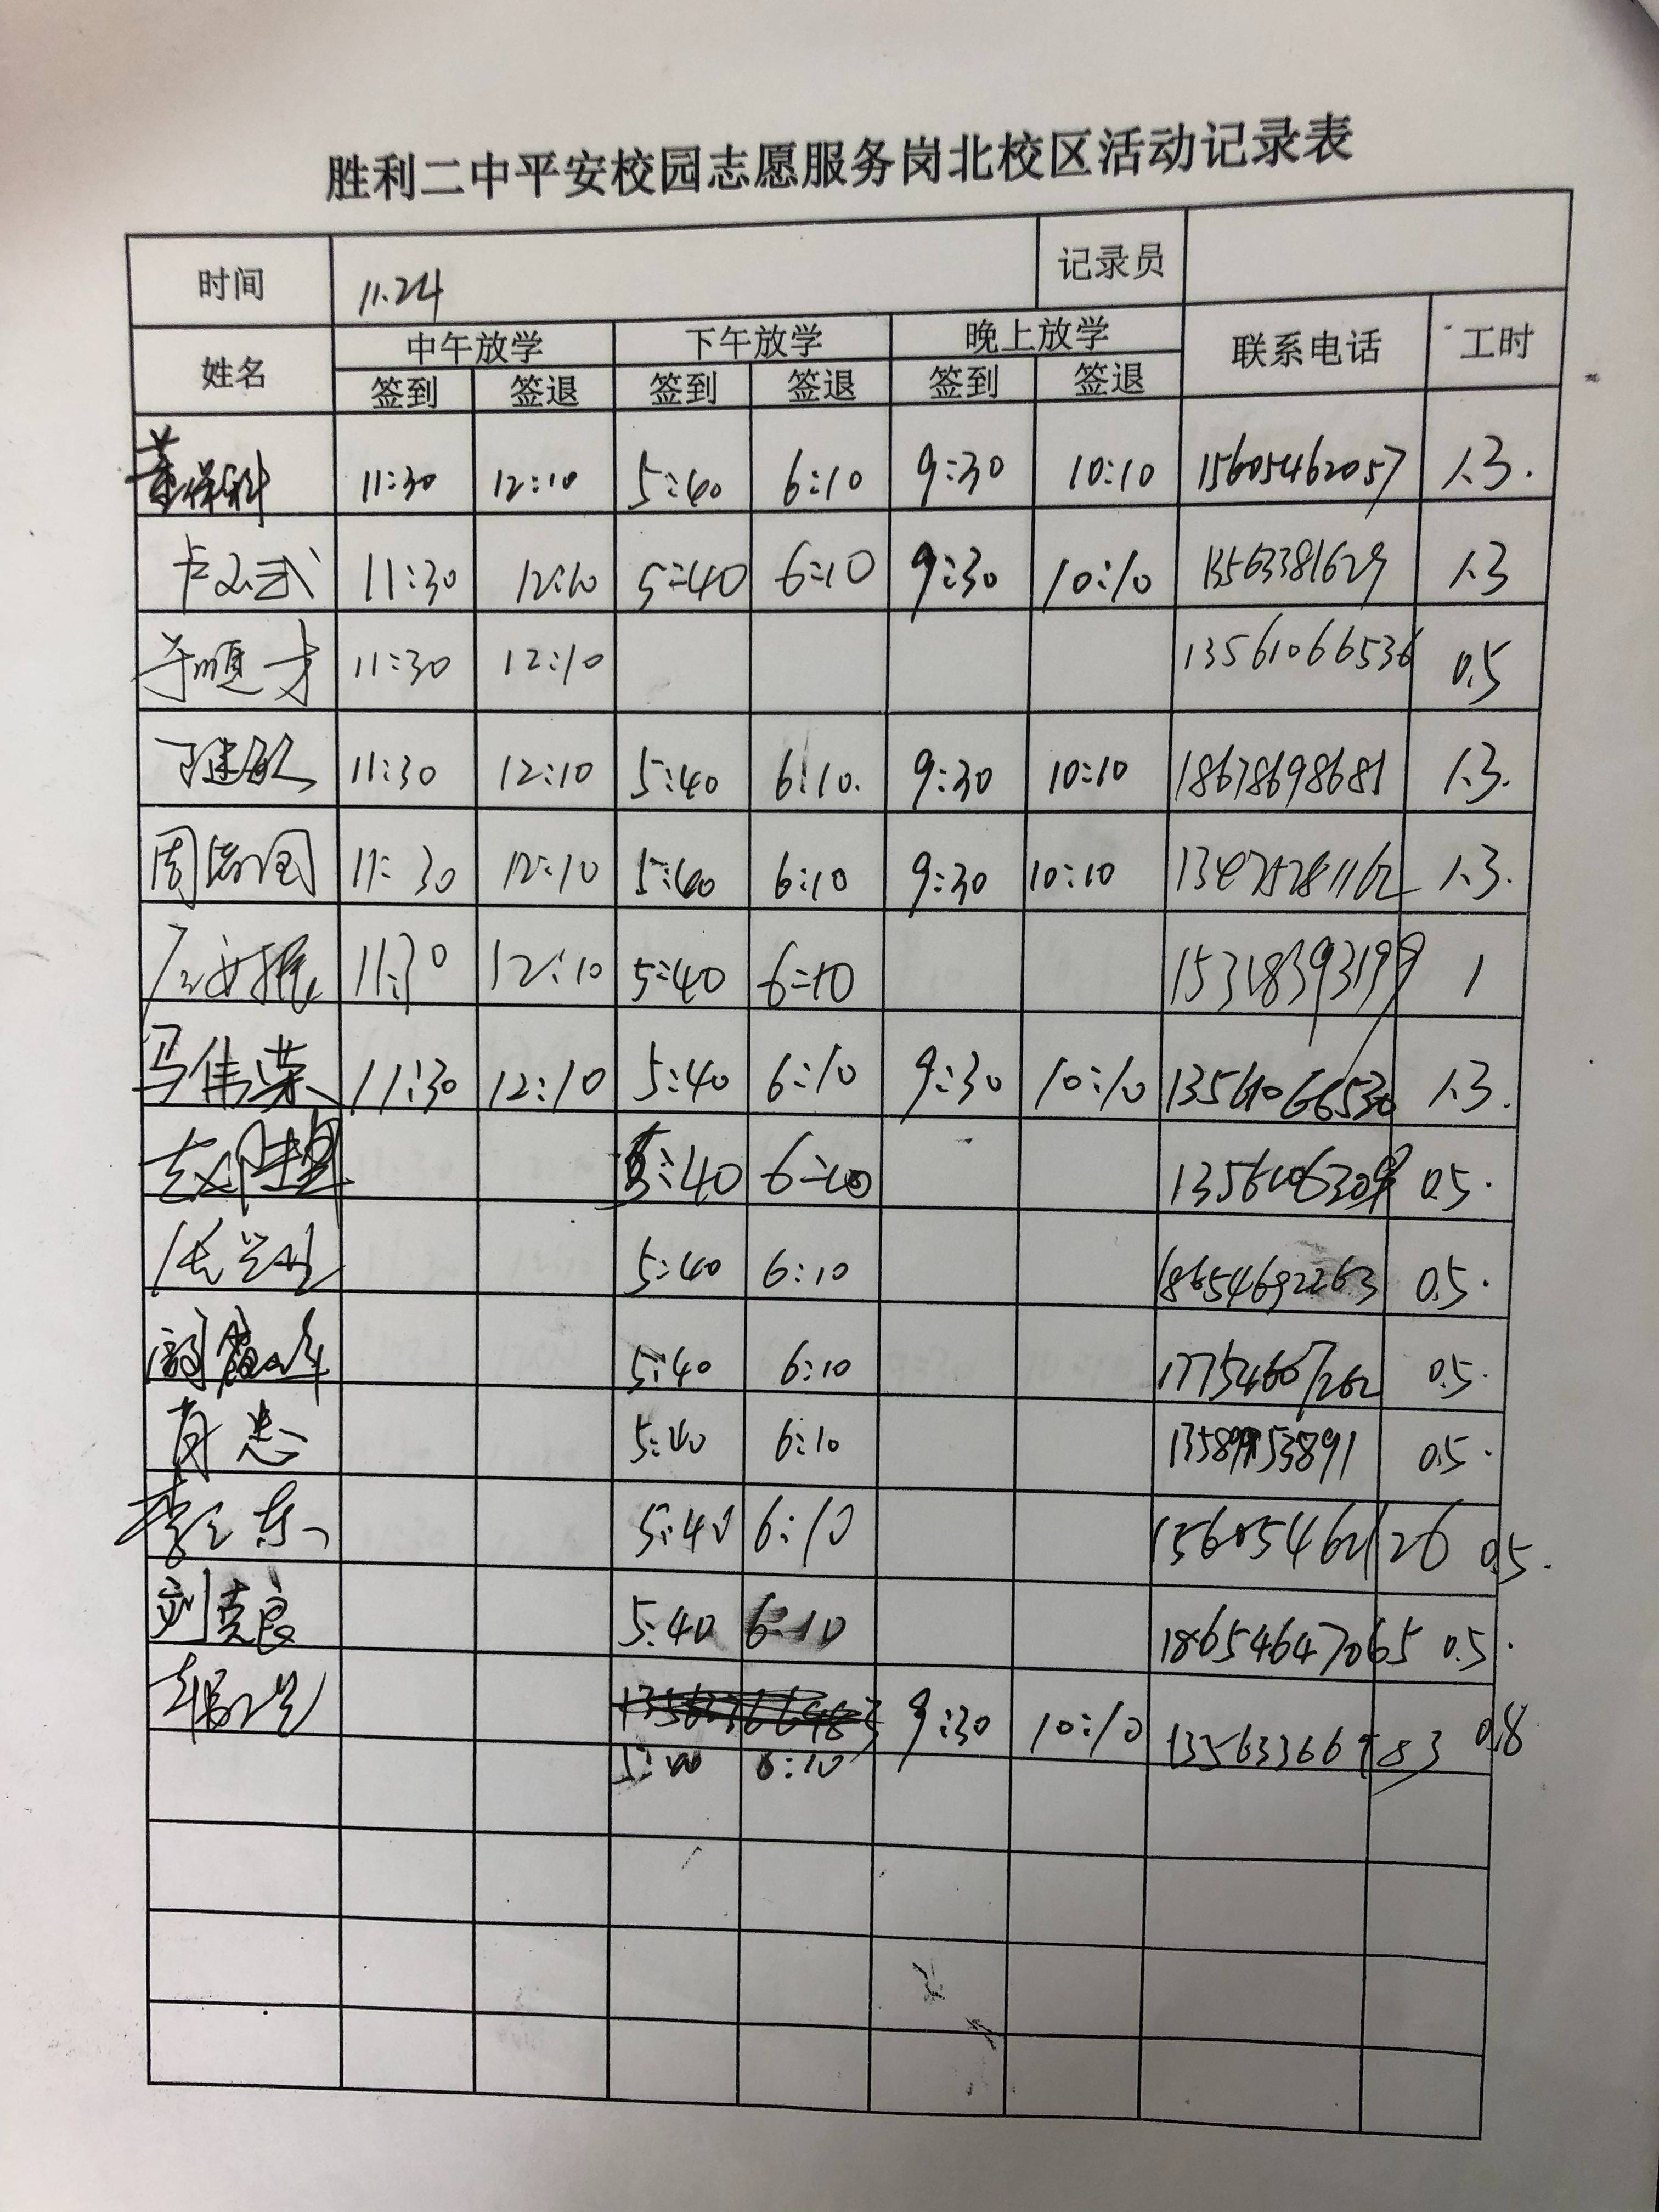 胜利二中平安校园志愿服务岗北校区活动记录表
时间 11.24 记录员
姓名 中午放学 下午放学 晚上放学 联系电话 工时
签到 签退 签到 签退 签到 签退
11:30 12:10 5:40 6:10 9:30 10:10 15605462057 1.3.
11:30 12:10 5:40 6:10 9:30 10:10 13563381629 1.3
于顺才 11:30 12:10 13561066536 0.5
11:30 12:10 5:40 6:10. 9:30 10:10 18678698681 1.3.
11:30 12:10 5:40 6:10 9:30 10:10 1.3.
11:30 12:10 5:40 6:10 15318393199 1
马伟荣 11:30 12:10 5:40 6:10 9:30 10:10 13561066530 1.3.
5:40 6:10 0.5.
5:40 6:10 18654692263 0.5.
5:40 6:10 17754607262 0.5.
5:40 6:10 0.5.
5:40 6:10 15605462126 0.5.
刘克良 5:40 6:10 18654647065 0.5.
9:30 10:10 0.8
5:40 6:10